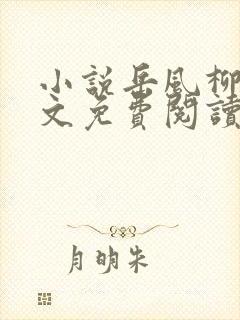 小說岳風柳
文免費閱讀
月明朱